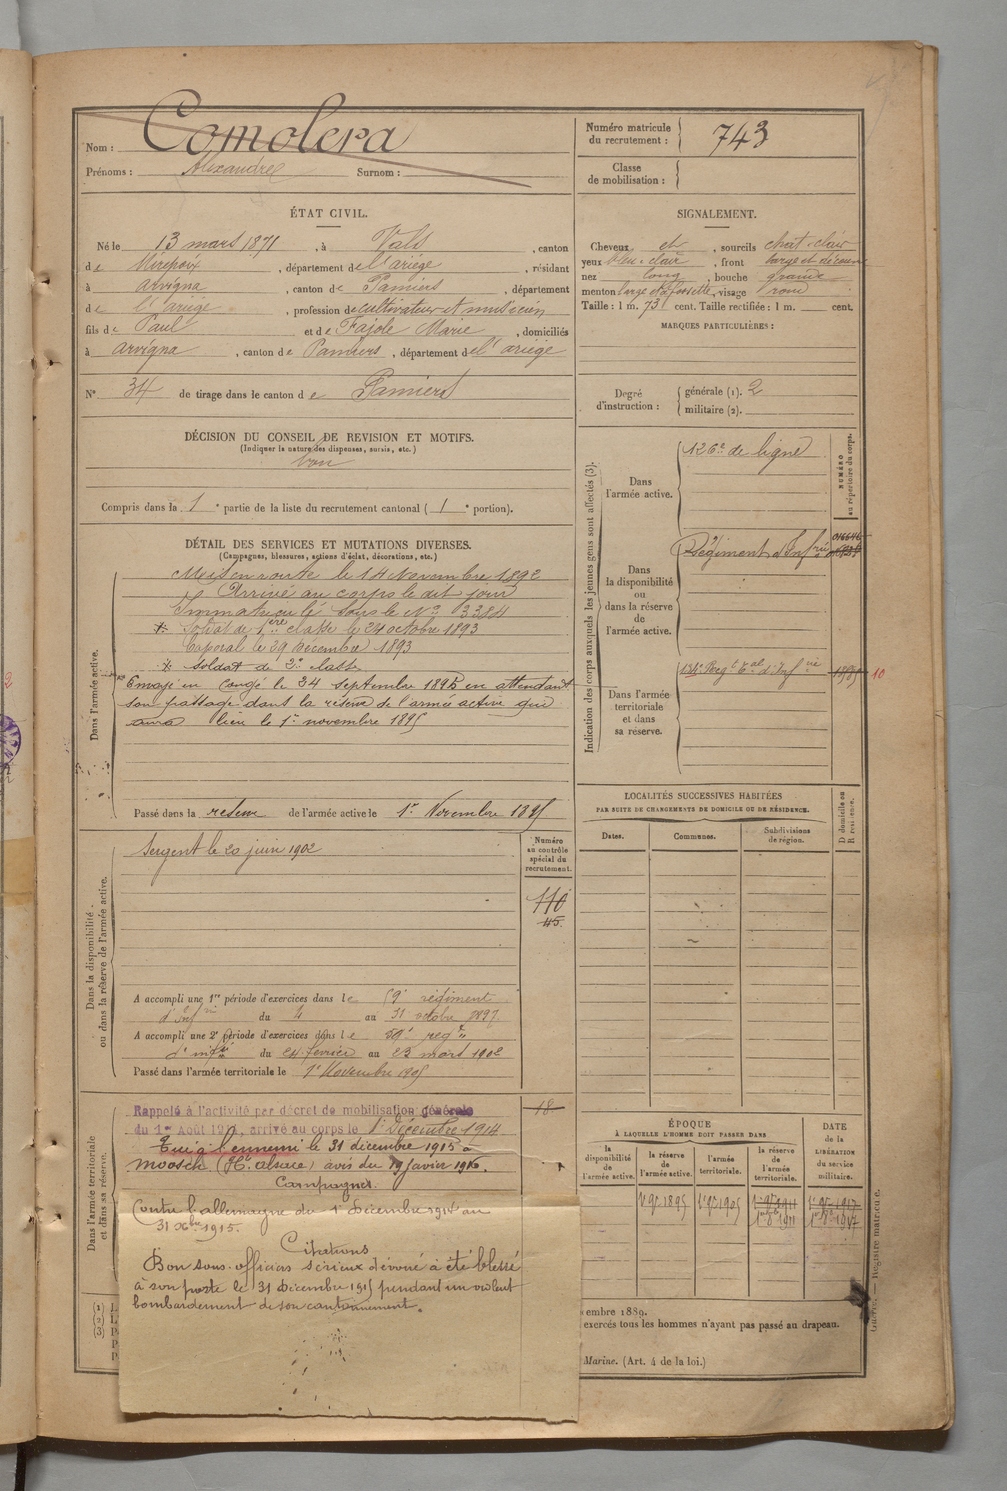 Nom : Comolera
Prénoms : Alexandre Surnom :
Numéro matricule du recrutement : 743
Classe de mobilisation :
ÉTAT CIVIL.
Né le 13 mars 1871, à Vals, canton
de Mirepoix, département de l'ariège, résidant
à arvigna, canton de Pamiers, département
de l'ariège, profession de cultivateur et musicien
fils de Paul et de Fajole Marie, domiciliés
à arvigna, canton de Pamiers, département de l'ariège
N° 34 de tirage dans le canton de Pamiers
SIGNALEMENT.
Cheveux et, sourcils chat. clair
yeux bleu clair, front large et découv
nez long, bouche grande
menton large et à fossette, visage rond
Taille : 1 m. 731 cent. Taille rectifiée : 1 m. cent.
MARQUES PARTICULIÈRES :
Degré d'instruction :
générale (1). 2
militaire (2).
DÉCISION DU CONSEIL DE REVISION ET MOTIFS.
(Indiquer la nature des dispenses, sursis, etc.)
bon
Compris dans la 1e partie de la liste du recrutement cantonal (1e portion).
DÉTAIL DES SERVICES ET MUTATIONS DIVERSES.
(Campagnes, blessures, actions d'éclat, décorations, etc.)
Dans l'armée active.
Mis en route le 14 Novembre 1892
Arrivé au corps le dit jour
Immatriculé sous le No 3384
Soldat de 1ère classe le 24 octobre 1893
Caporal le 29 Décembre 1893
Soldat de 2e classe
Envoyé en congé le 24 septembre 1895 en attendant
son passage dans la réserve de l'armée active qui
aura lieu le 1r novembre 1895
Passé dans la réserve de l'armée active le 1r Novembre 1895
Dans la disponibilité ou dans la réserve de l'armée active.
Sergent le 20 juin 1902
Numéro au contrôle spécial du recrutement.
110
45
A accompli une 1re période d'exercices dans le 59e régiment
d'Infie du 4 au 31 octobre 1897
A accompli une 2e période d'exercices dans le 59e régt
d'infie du 24 fevrier au 23 mars 1902
Passé dans l'armée territoriale le 1r Novembre 1905
Dans l'armée territoriale et dans sa réserve.
18
Rappelé à l'activité par décret de mobilisation générale
du 1er Août 1914, arrivé au corps le 1r Décembre 1914
Tué à l'ennemi le 31 décembre 1915 à
Moosch (Hte alsace) avis du 19 janvier 1916.
Campagnes.
Contre l'allemagne du 1r Décembre 1914 au
31 Xbre 1915.
Citations
Bon sous-officier sérieux dévoué à été blessé
à son poste le 31 Décembre 1915 pendant un violent
bombardement de son cantonnement.
Indication des corps auxquels les jeunes gens sont affectés (3).
NUMÉRO au répertoire du corps.
Dans l'armée active.
126e de ligne
Dans la disponibilité ou dans la réserve de l'armée active.
Régiment d'Infrie
Dans l'armée territoriale et dans sa réserve.
134e Regt Tal d'Infrie
10
LOCALITÉS SUCCESSIVES HABITÉES
PAR SUITE DE CHANGEMENTS DE DOMICILE OU DE RÉSIDENCE.
Dates. Communes. Subdivisions de région. D domicile ou R résidence.
ÉPOQUE
À LAQUELLE L'HOMME DOIT PASSER DANS
la disponibilité de l'armée active.
la réserve de l'armée active.
l'armée territoriale.
la réserve de l'armée territoriale.
DATE de la LIBÉRATION du service militaire.
1r 9bre 1895
1r 9bre 1905
1r 9bre 1911
1r 9bre 1917
embre 1889.
exercés tous les hommes n'ayant pas passé au drapeau.
Marine. (Art. 4 de la loi.)
Guerre. — Registre matricule.